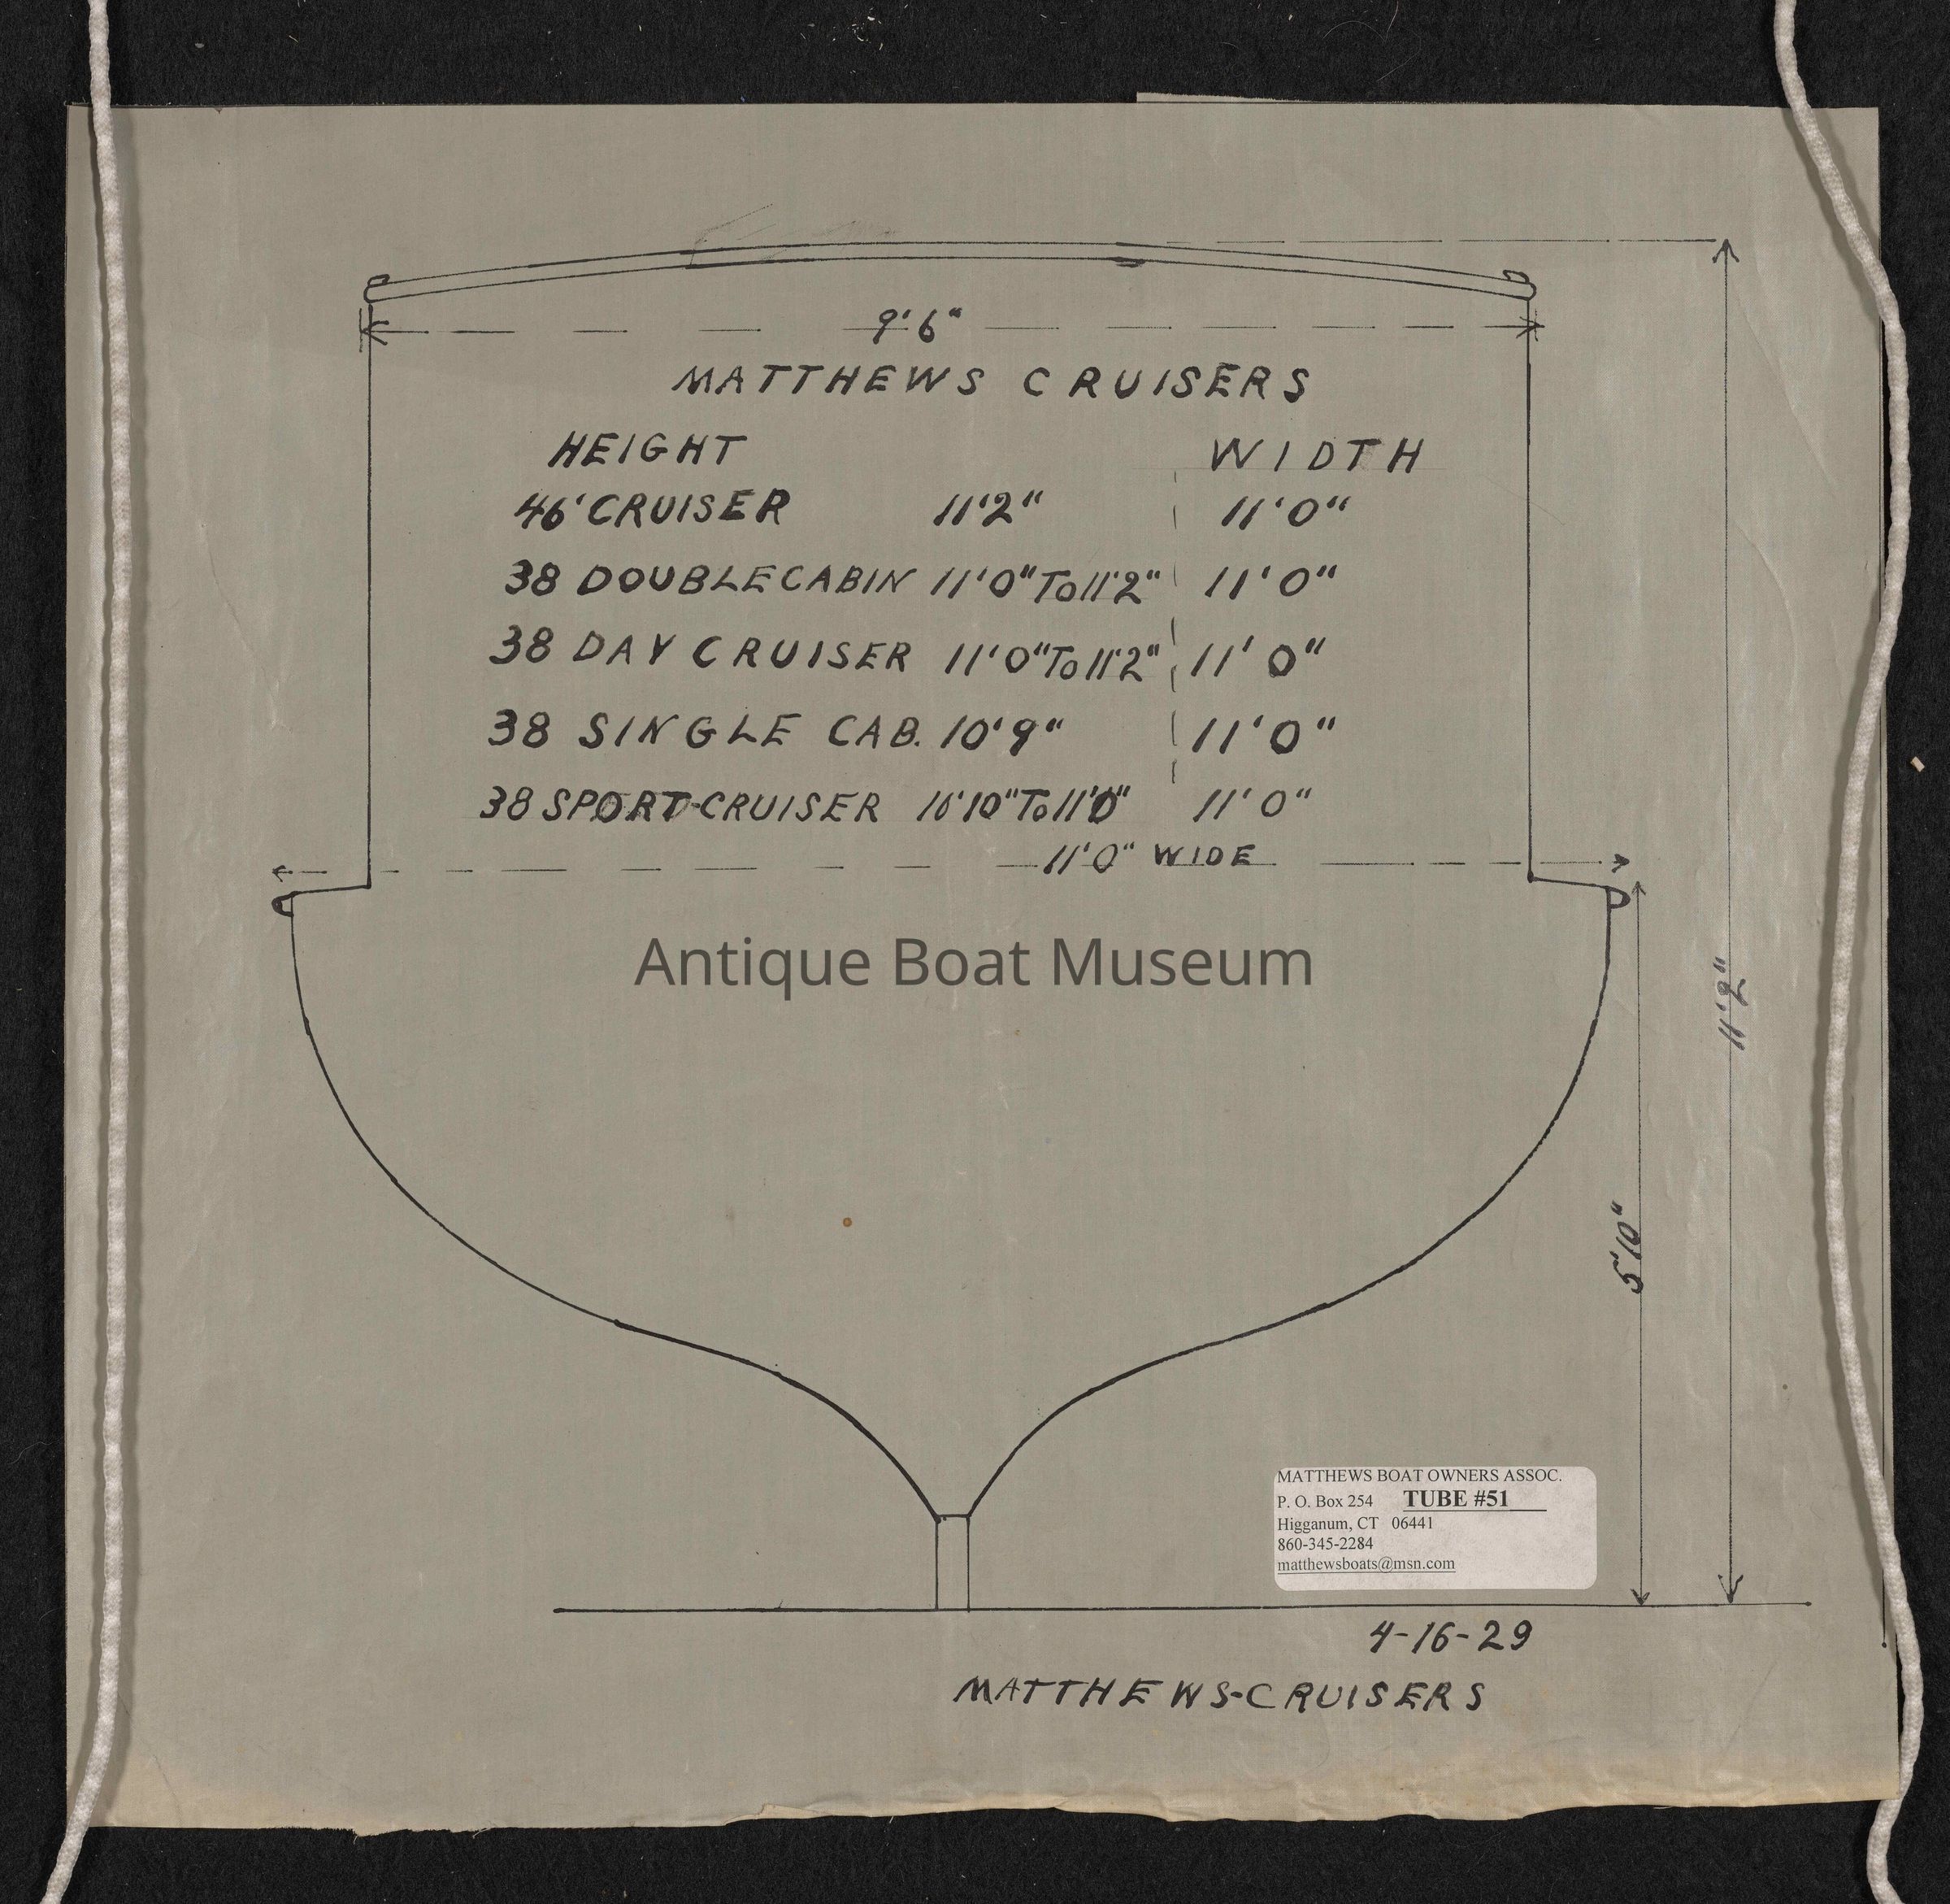 9'6"
MATTHEWS CRUISERS
HEIGHT WIDTH
46' CRUISER 11'2" 11'0"
38 DOUBLE CABIN 11'0" To 11'2" 11'0"
38 DAY CRUISER 11'0" To 11'2" 11'0"
38 SINGLE CAB. 10'9" 11'0"
38 SPORT-CRUISER 10'10" To 11'0" 11'0"
11'0" WIDE
Antique Boat Museum
11'2"
5'10"
MATTHEWS BOAT OWNERS ASSOC.
P. O. Box 254 TUBE #51
Higganum, CT 06441
860-345-2284
matthewsboats@msn.com
4-16-29
MATTHEWS-CRUISERS